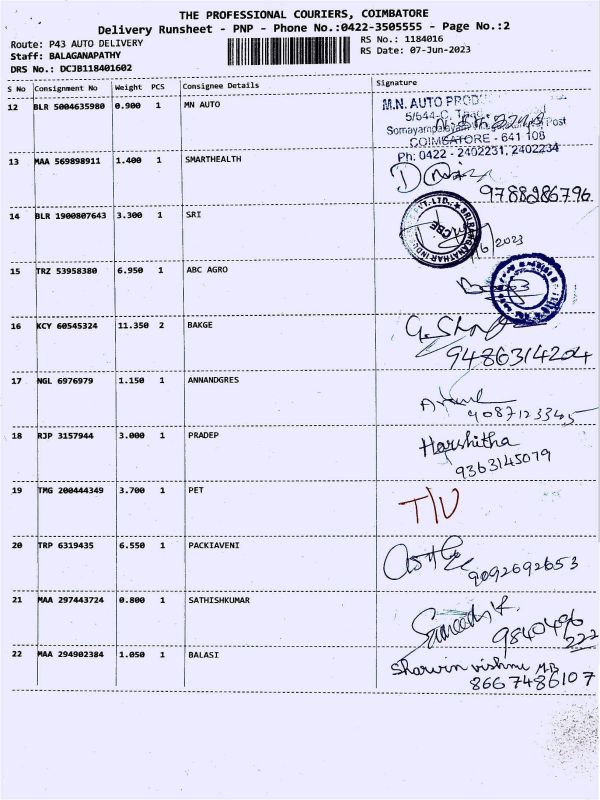 THE PROFESSIONAL COURIERS, COIMBATORE
Delivery Runsheet - PNP - Phone No.:0422-3505555 - Page No.:2
Route: P43 AUTO DELIVERY
RS No.: 1184016
Staff: BALAGANAPATHY
RS Date: 07-Jun-2023
DRS No.: DCJB118401602
S No Consignment No Weight PCS Consignee Details Signature
12 BLR 5004635980 0.900 1 MN AUTO
M.N. AUTO PROD
5/644-C,
Post
COIMBATORE - 641 108
Ph: 0422 - 2402231, 2402234
13 MAA 569898911 1.400 1 SMARTHEALTH
9788286796
14 BLR 1900807643 3.300 1 SRI
PVT. LTD. SRI RANGANATHAR IND
CBE
/6/2023
15 TRZ 53958380 6.950 1 ABC AGRO
16 KCY 60545324 11.350 2 BAKGE
9486314204
17 NGL 6976979 1.150 1 ANNANDGRES
9087123345
18 RJP 3157944 3.000 1 PRADEP
Harshitha
9363145079
19 TMG 200444349 3.700 1 PET
T/U
20 TRP 6319435 6.550 1 PACKIAVENI
9092692653
21 MAA 297443724 0.800 1 SATHISHKUMAR
9840496
222
22 MAA 294902384 1.050 1 BALASI
Sharwin vishnu M.B
8667486107